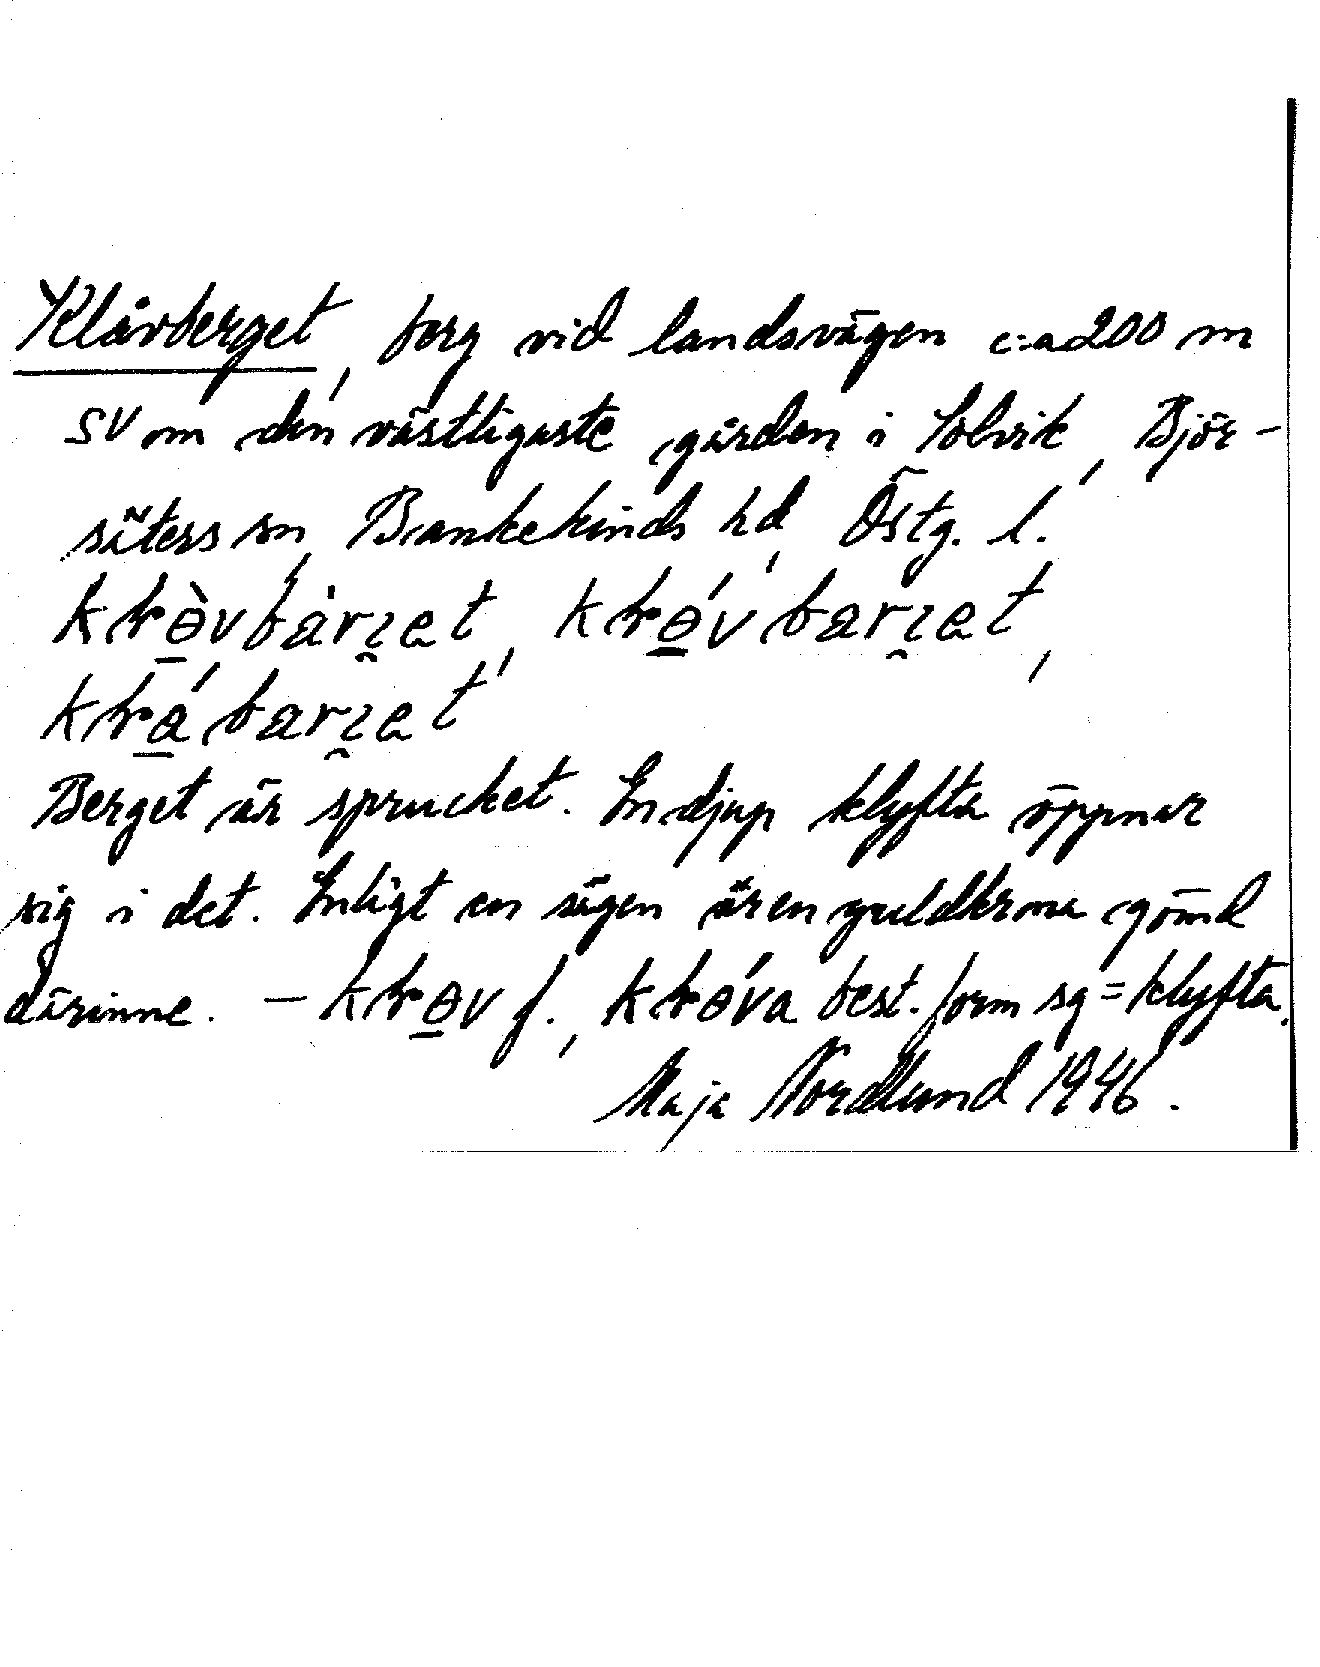 Klåvberget, berg vid landsvägen c:a 200 m
SV om den västligaste gården i Solvik, Björ-
säters sn, Bankekinds hd, Östg. l.
Berget är sprucket. En djup klyfta öppnar
sig i det. Enligt en sägen är en guldkrona gömd
därinne. — f., best. form sg = klyfta.
Maja Nordlund 1946.